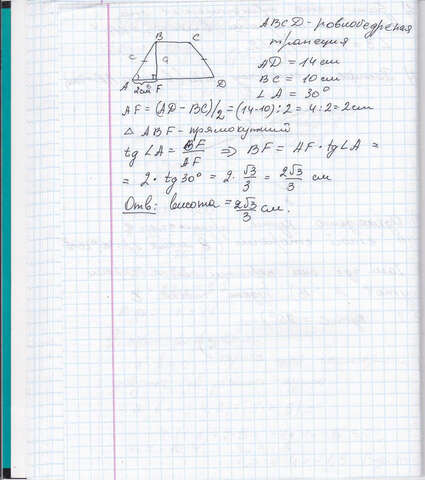 ABCD - ровнобедреная
трапеция
AD = 14 см
BC = 10 см
∠A = 30°
B C
c a
A 2см F D
AF = (AD - BC)/2 = (14-10):2 = 4:2 = 2см
△ ABF - прямокутний
tg ∠A = BF/AF ⇒ BF = AF · tg∠A =
= 2 · tg 30° = 2 · √3/3 = 2√3/3 см
Отв: висота = 2√3/3 см.